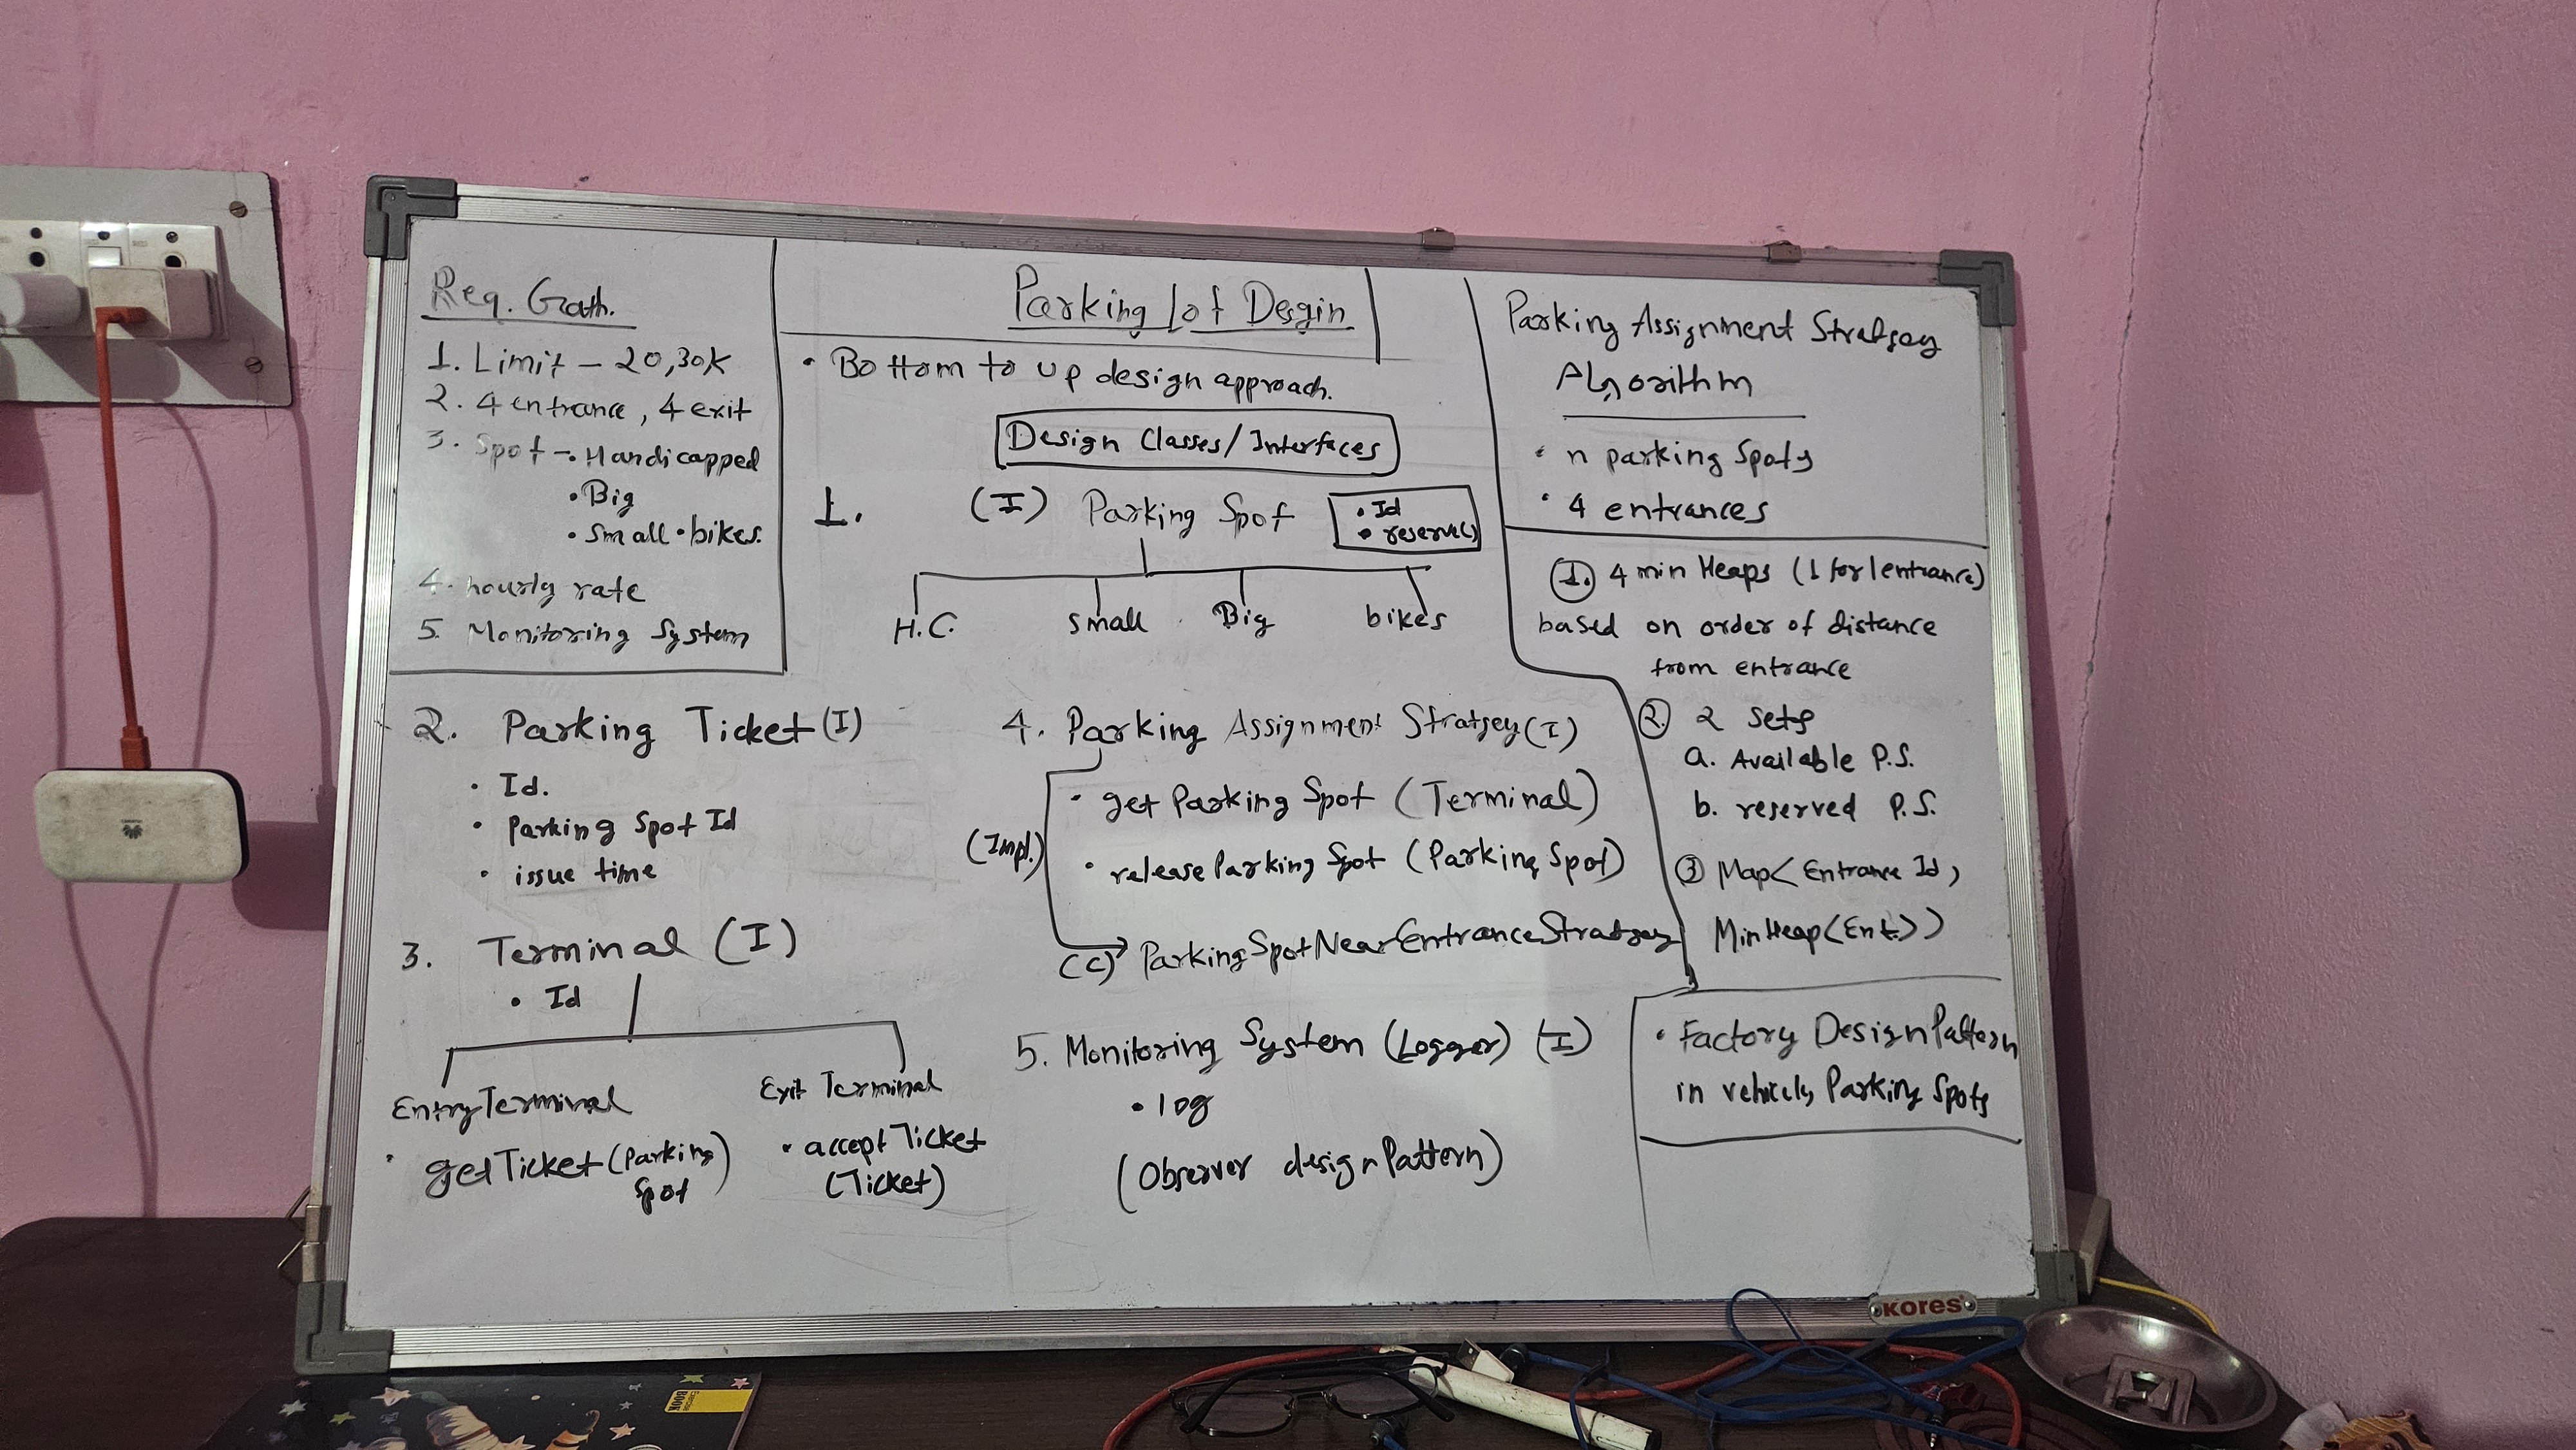 Req. Gath.
1. Limit - 20,30k
2. 4 entrance, 4 exit
3. Spot - • Handicapped
• Big
• small • bikes.
4. hourly rate
5. Monitoring System
Parking lot Desgin
• Bottom to up design approach.
Design Classes/Interfaces
1. (I) Parking Spot
• Id
• reserve()
H.C. small Big bikes
2. Parking Ticket (I)
• Id.
• Parking Spot Id
• issue time
3. Terminal (I)
• Id
Entry Terminal
• getTicket (Parking
Spot)
Exit Terminal
• accept Ticket
(Ticket)
4. Parking Assignment Stratgey (I)
• get Parking Spot (Terminal)
(Impl.)
• releaseParking Spot (Parking Spot)
(C) ParkingSpotNearEntranceStratgey
5. Monitoring System (Logger) (I)
• log
(Observer design Pattern)
Parking Assignment Stratgey
Algorithm
• n parking Spots
• 4 entrances
1. 4 min Heaps (1 for 1 entrance)
based on order of distance
from entrance
2. 2 sets
a. Available P.S.
b. reserved P.S.
3 Map< Entrance Id,
MinHeap<Ent.>>
• Factory Design Pattern
in vehicles, Parking Spots
KORES
BOOK